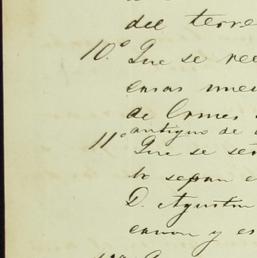 del terre
10.º Que se ree
enas nue
de Comes
antiguo de
11º Que se se
lo sepan e
D. Agustin
canon y es